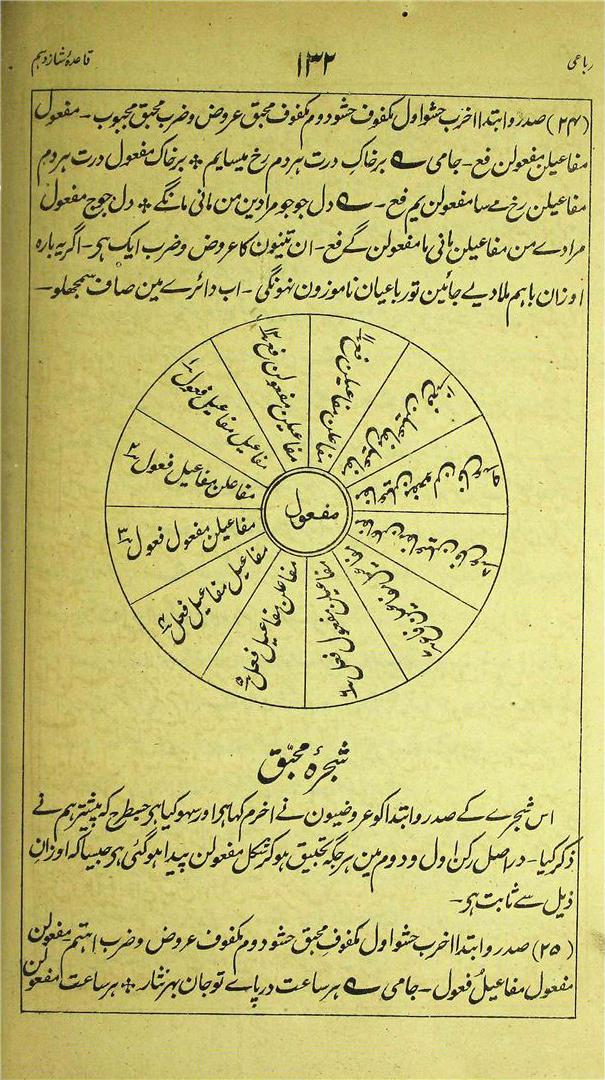 رباعی ۱۳۲ قاعدۂ شانزدہم
(۲۴) صدر و ابتدا اخرب حشو اول مکفوف حشو دوم مکفوف محبق عروض و ضرب محبق مجبوب - مفعول
مفاعیلن مفعولن فع - جامی ے برخاک درت ہر دم رخ میسایم ٭ برخاک مفعول درت ہر دم
مفاعیلن رخ مے سا مفعولن یم فع - ے دل جو جو مرادین من مانی مانگے ٭ دل جو ج مفعول
مرادے من مفاعیلن مانی ما مفعولن گے فع - ان تینون کا عروض و ضرب ایک ہی - اگر یہ بارہ
اوزان باہم ملا دیے جائین تو رباعیان ناموزون نہونگی - اب دائرے مین صاف سمجھ لو -
مفعول
مفاعیل مفاعیل فعول ۱
مفاعلن مفاعیل فعول ۲
مفاعیلن مفعول فعول ۳
مفاعیل مفاعیل فعل ۴
مفاعلن مفاعیل فعل ۵
مفاعیلن مفعول فعل ۶
مفاعیل مفاعیلن فاع ۷
مفاعلن مفاعیلن فاع ۸
مفاعیلن مفعولن فاع ۹
مفاعیل مفاعیلن فع ۱۰
مفاعلن مفاعیلن فع ۱۱
مفاعیلن مفعولن فع ۱۲
شجرۂ محبّق
اس شجرے کے صدر و ابتدا کو عروضیون نے اخرم کہا ہی اور سہو کیا ہی جسطرح کہ پیشتر ہم نے
ذکر کیا - در اصل رکن اول و دوم مین ہر جگہ تحبیق ہو کر شکل مفعولن پیدا ہو گئی ہی جیسا کہ اوزان
ذیل سے ثابت ہی -
(۲۵) صدر و ابتدا اخرب حشو اول مکفوف محبق حشو دوم مکفوف عروض و ضرب اہتم - مفعولن
مفعول مفاعیلُ فعول - جامی ے ہر ساعت در پاے تو جان بہر نثار ٭ ہر ساعت مفعولن